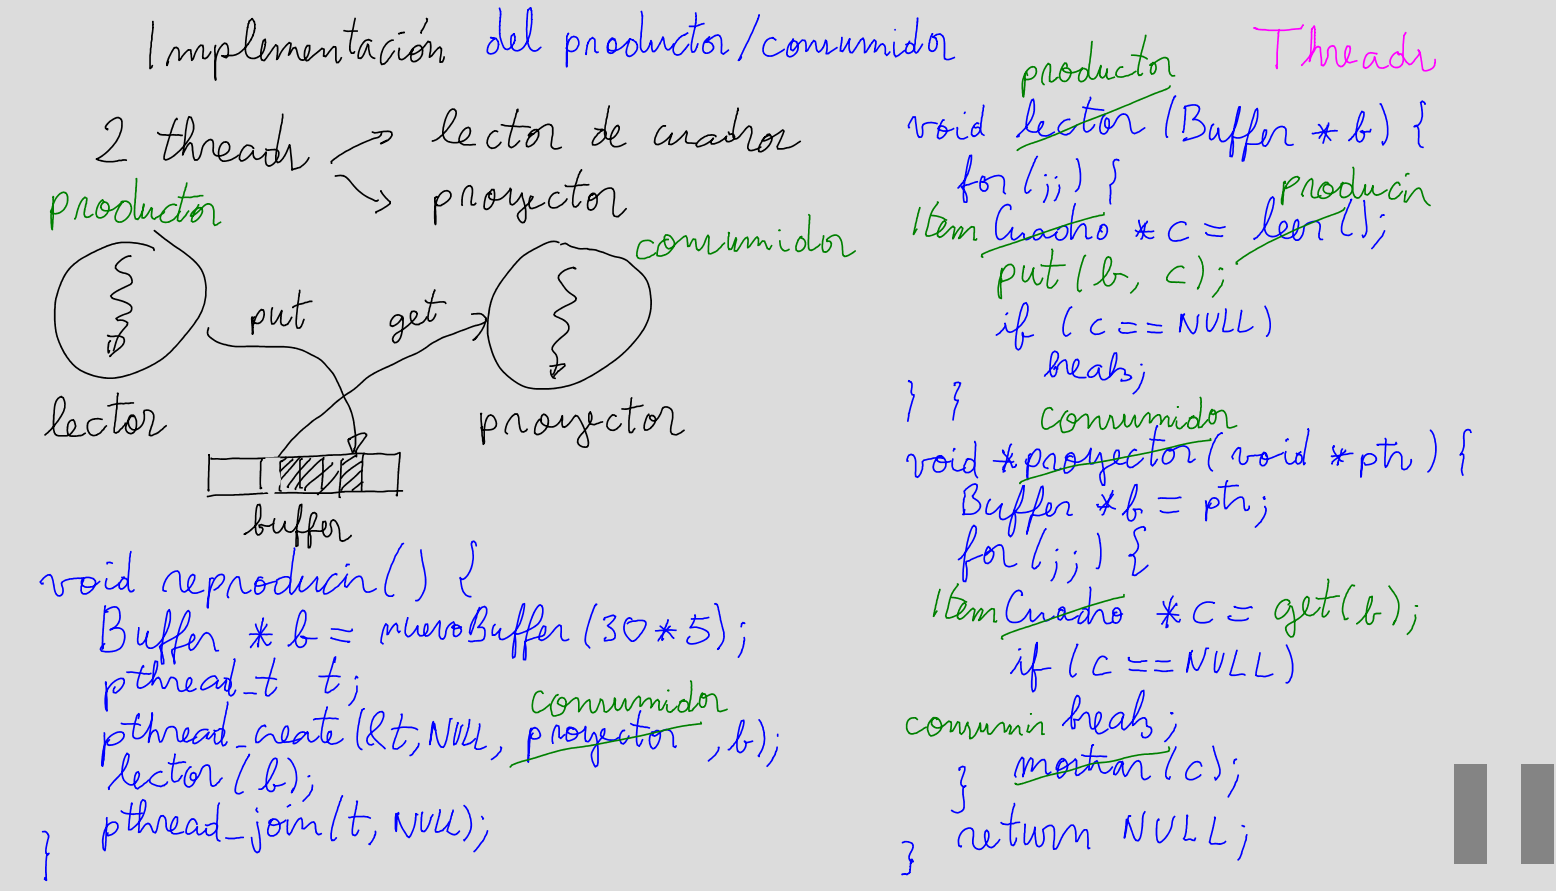 Implementación del productor/consumidor
Threads
2 threads
lector de cuadros
proyector
productor
consumidor
put
get
lector
proyector
buffer
void reproducir() {
Buffer * b = nuevoBuffer(30*5);
pthread_t t;
consumidor
pthread_create(&t, NULL, proyector, b);
lector(b);
pthread_join(t, NULL);
}
productor
void lector(Buffer * b) {
for(;;) {
producir
Item Cuadro * c = leer();
put(b, c);
if (c == NULL)
break;
} }
consumidor
void *proyector(void *ptr) {
Buffer *b = ptr;
for(;;) {
Item Cuadro * c = get(b);
if (c == NULL)
consumir break;
} mostrar(c);
return NULL;
}